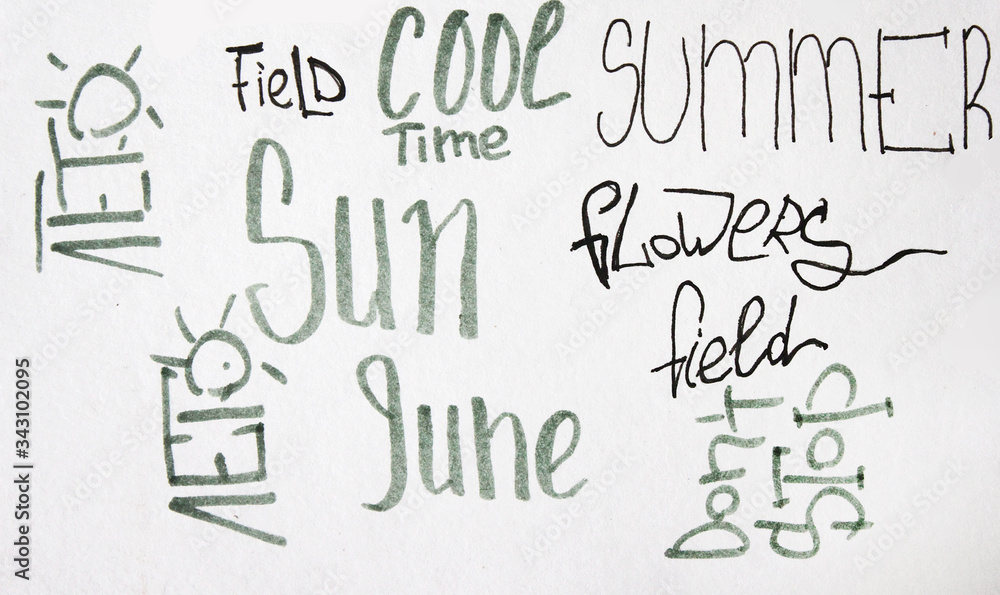 ЛЕТО
FieLD
COOL
Time
SUMMER
Sun
FLOWERS
field
ЛЕТО
June
Dont
STOP
Adobe Stock | #343102095